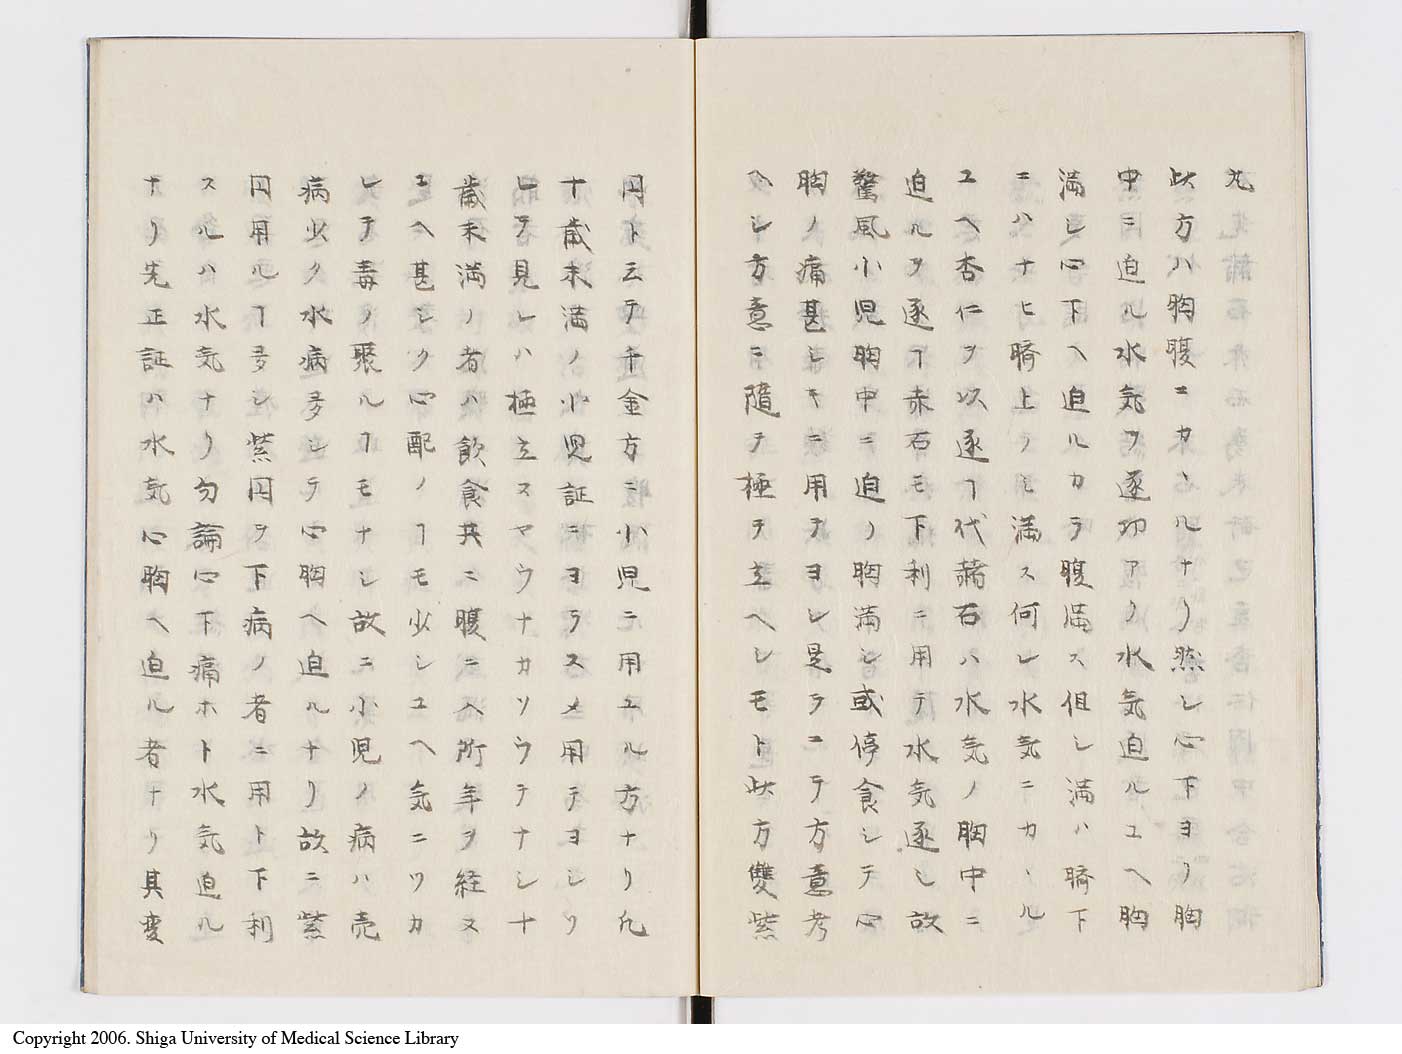 丸
此方ハ胸腹ニカヽルナリ然レ心下ヨリ胸
中ニ迫ル水気ヲ逐切アリ水気迫ルユヘ胸
満シ心下ヘ迫ルカラ腹満ス但シ満ハ臍下
ニハナヒ臍上ノミ満ス何レ水気ニカヽル
ユヘ杏仁ヲ以逐フ代赭石ハ水気ノ胸中ニ
迫ルヲ逐フ赤石モ下利ニ用テ水気逐シ故
驚風小児胸中ニ迫リ胸満シ或停食シテ心
胸ノ痛甚シキニ用テヨシ是ラニテ方意考
ヘシ方意ニ随テ極テ立ヘシモト此方雙紫
円ト云テ千金方ニ小児ニ用ユル方ナリ凢
十歳未満ノ小児証ニヨラスメ用テヨシリ
ヒテ見レハ極立スマウナカソウテナシ十
歳未満ノ者ハ飲食共ニ腹ニ入所年ヲ経ヌ
ユヘ甚シク心配ノヿモ少シユヘ気ニツカ
レテ毒ノ聚ルヿモナシ故ニ小児ノ病ハ売
病少ク水病多シテ心胸ヘ迫ルナリ故ニ紫
円用ルヿ多シ紫円ヲ下病ノ者ニ用ト下利
スルハ水気ナリ勿論心下痛ホト水気迫ル
ナリ先正証ハ水気心胸ヘ迫ル者ナリ其変
Copyright 2006. Shiga University of Medical Science Library